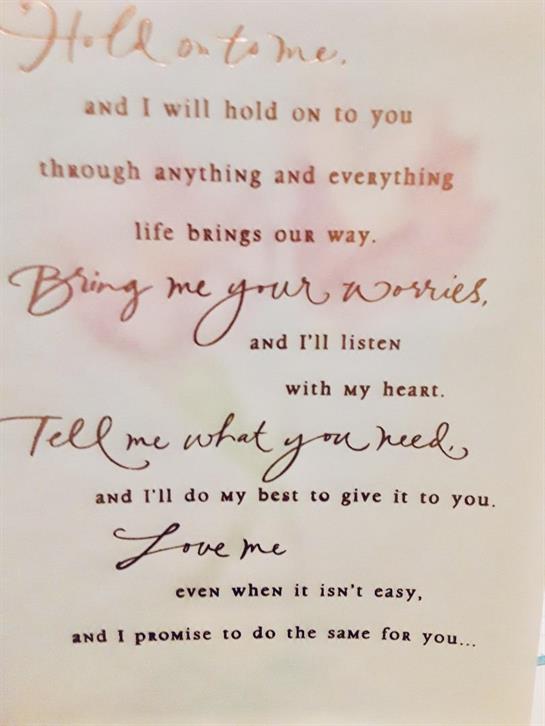 Hold on to me,
and I will hold on to you
through anything and everything
life brings our way.
Bring me your worries,
and I'll listen
with my heart.
Tell me what you need,
and I'll do my best to give it to you.
Love me
even when it isn't easy,
and I promise to do the same for you...